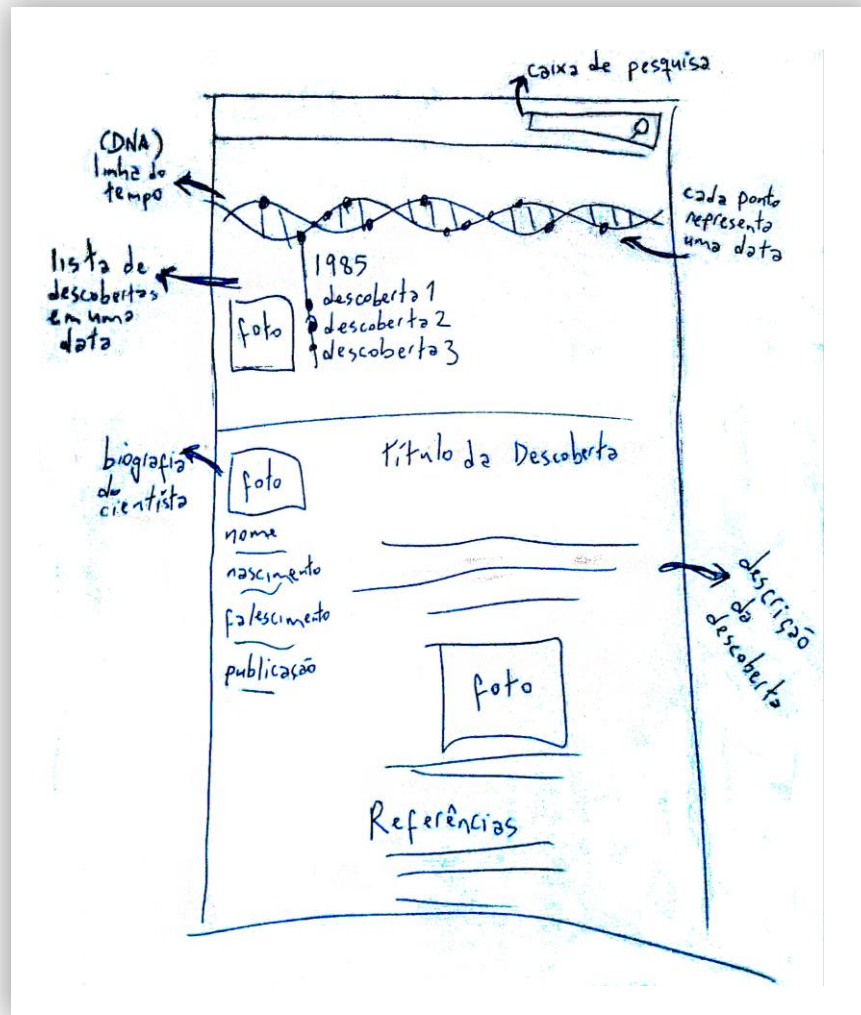 caixa de pesquisa
(DNA)
linha do
tempo
cada ponto
representa
uma data
lista de
descobertas
em uma
data
1985
descoberta 1
descoberta 2
descoberta 3
foto
biografia
do
cientista
foto
nome
nascimento
falescimento
publicação
Título da Descoberta
descrição
da
descoberta
foto
Referências